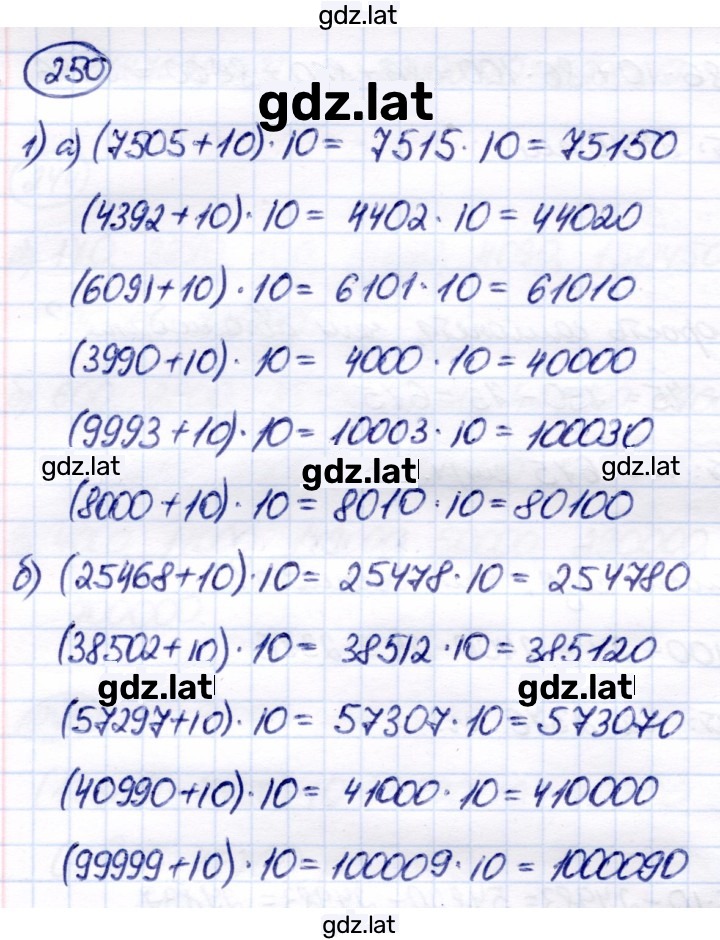 gdz.lat
250
gdz.lat
1) а) (7505+10)·10= 7515·10=75150
(4392+10)·10= 4402·10=44020
(6091+10)·10= 6101·10=61010
(3990+10)·10= 4000·10=40000
(9993+10)·10=10003·10=100030
gdz.lat gdz.lat gdz.lat
(8000+10)·10=8010·10=80100
б) (25468+10)·10= 25478·10= 254780
(38502+10)·10= 38512·10=385120
gdz.lat gdz.lat
(57297+10)·10= 57307·10=573070
(40990+10)·10= 41000·10=410000
(99999+10)·10=100009·10=1000090
gdz.lat